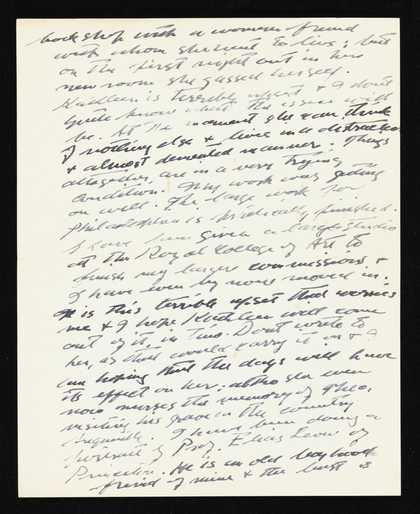 bookshop with a woman friend
with whom she went to live; but
on the first night out in her
new room she gassed herself.
Kathleen is terribly upset & I don't
quite know what the issue will
be. At the moment she can think
of nothing else & lives in a distracted
& almost demented manner. Things
altogether are in a very trying
condition. My work was going
on well. The large work for
Philadelphia is practically finished.
I have been given a large studio
at the Royal College of Art to
finish my larger commissions &
I have even by now moved in.
It is this terrible upset that worries
me & I hope Kathleen will come
out of it in time. Don't write to
her, as that would carry it on & I
am hoping that the days will have
its effect on her: altho she even
now nurses the memory of Theo,
visiting his grave in the country
I have been doing a
portrait of Prof. Elias Lowe of
Princeton. He is an old boyhood
friend of mine & the bust is